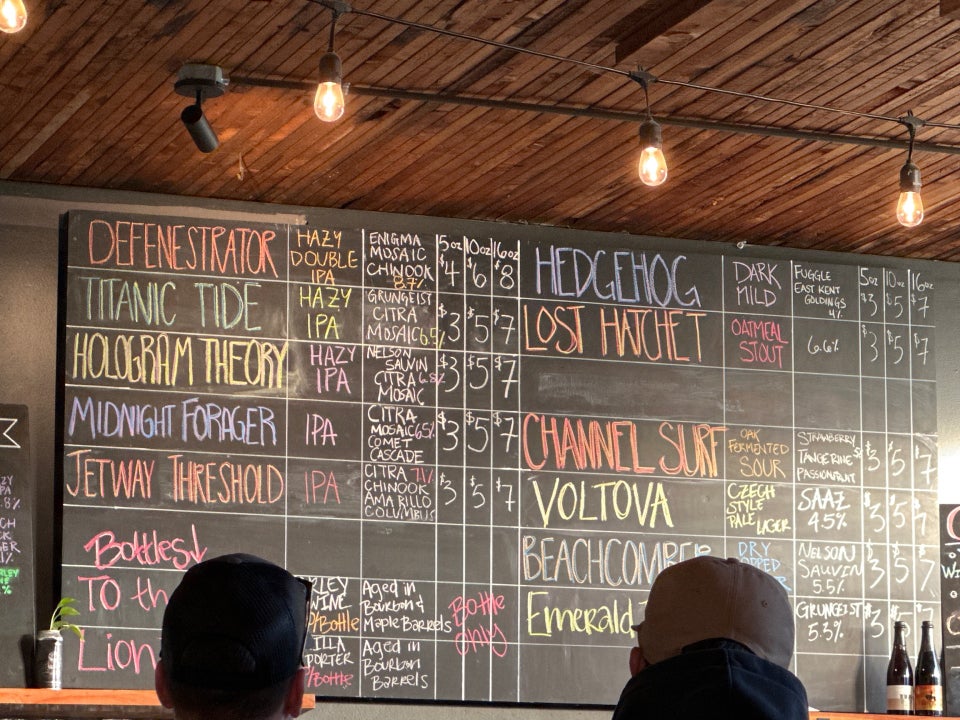 DEFENESTRATOR HAZY DOUBLE IPA ENIGMA MOSAIC CHINOOK 8.7% 5oz 10oz 16oz $4 $6 $8
TITANIC TIDE HAZY IPA GRUNGEIST CITRA MOSAIC $3 $5 $7
HOLOGRAM THEORY HAZY IPA NELSON SAUVIN CITRA MOSAIC $3 $5 $7
MIDNIGHT FORAGER IPA CITRA MOSAIC 6.5% COMET CASCADE $3 $5 $7
JETWAY THRESHOLD IPA CITRA 7% CHINOOK AMARILLO COLUMBUS $3 $5 $7
Bottles
TO th RLEY WINE /Bottle Aged in Bourbon & Maple Barrels Bottle only
Lion ILLA PORTER /Bottle Aged in Bourbon Barrels
HEDGEHOG DARK MILD FUGGLE EAST KENT GOLDINGS 4% 5oz 10oz 16oz $3 $5 $7
LOST HATCHET OATMEAL STOUT 6.6% $3 $5 $7
CHANNEL SURF OAK FERMENTED SOUR STRAWBERRY TANGERINE PASSIONFRUIT $3 $5 $7
VOLTOVA CZECH STYLE PALE LAGER SAAZ 4.5% $3 $5 $7
BEACHCOMBER DRY NELSON SAUVIN 5.5% $3 $5 $7
Emerald GRUNGEIST 5.5% $3 $5 $7